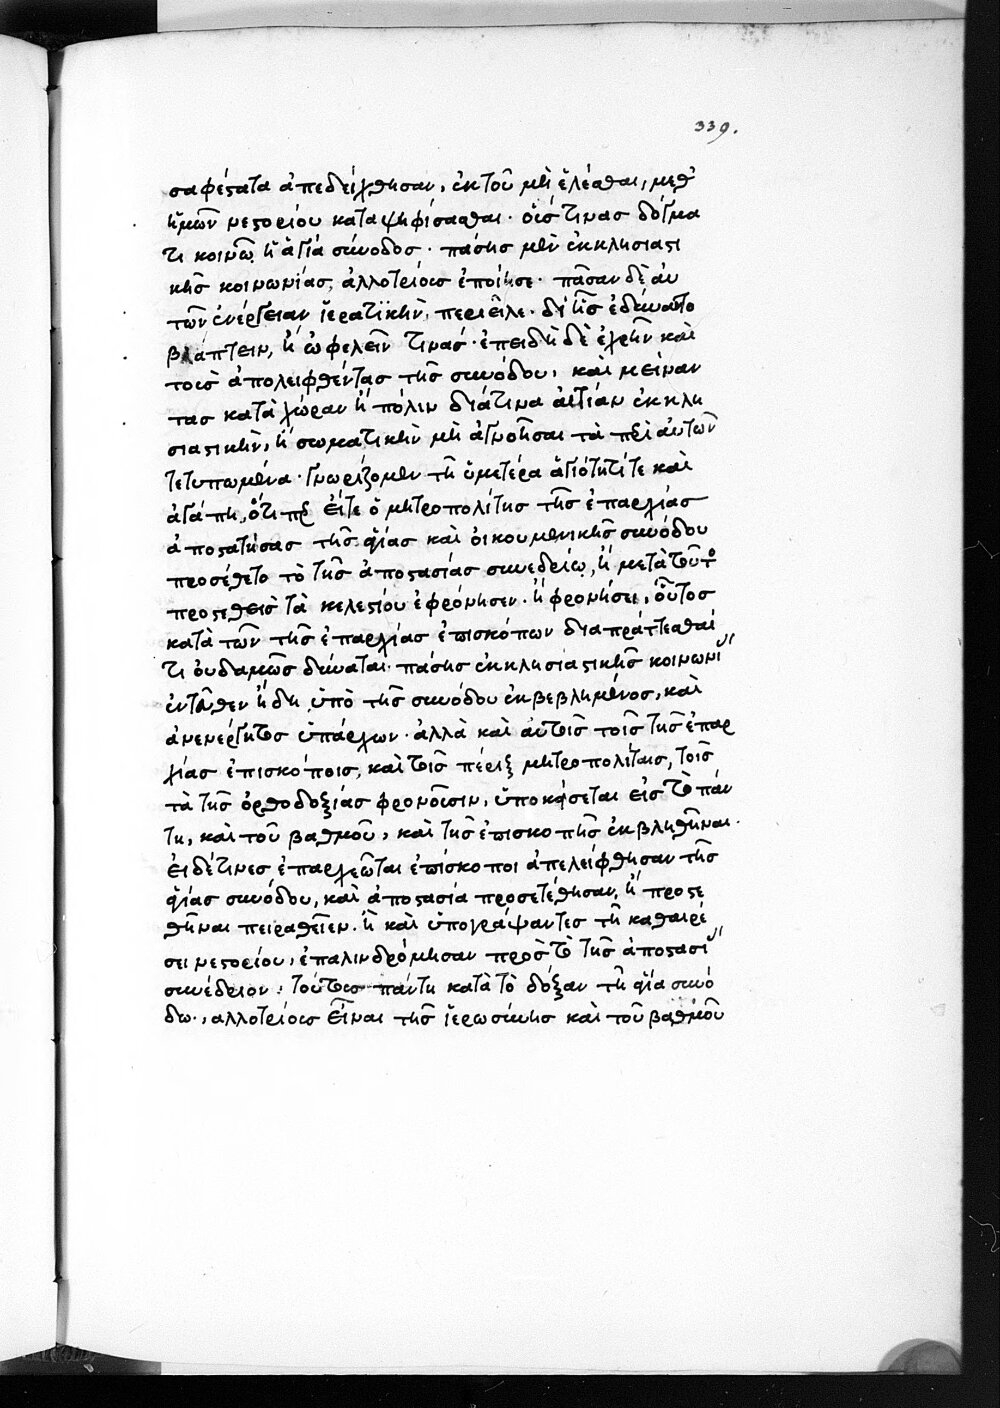 339.
σαφέστατα ἀπεδείχθησαν, ἐκ τοῦ μὴ ἑλέσθαι, μεθ'
ἡμῶν νεστορίου καταψηφίσασθαι· οὕστινας δόγμα
τι κοινῶ ἡ ἁγία σύνοδος· πάσης μὲν ἐκκλησιαστι
κῆς κοινωνίας, ἀλλοτρίους ἐποίησε· πᾶσαν δὲ αὐ
τῶν ἐνέργειαν ἱερατϊκὴν, περιεῖλε· δι' ἧς ἐδύναντο
βλάπτειν, ἢ ὠφελεῖν τινάς· ἐπειδὴ δὲ ἐχρῆν καὶ
τοὺς ἀπολειφθέντας τῆς συνόδου, καὶ μείναν
τας κατὰ χώραν ἢ πόλιν διά τινα αἰτίαν ἐκκλη
σιαστικὴν, ἢ σωματικὴν μὴ ἀγνοῆσαι τὰ περὶ αὐτῶν
τετυπωμένα· γνωρίζομεν τῆ ὑμετέρα ἁγιότητί τε καὶ
ἀγάπη, ὅτι περ εἴτε ὁ μητροπολίτης τῆς ἐπαρχίας
ἀποστατήσας τῆς ἁγίας καὶ οἰκουμενικῆς συνόδου
προσέθετο τὸ τῆς ἀποστασίας συνεδρίω, ἢ μετὰ τοῦτο
προστεθεὶς τὰ κελεστίου ἐφρόνησεν· ἢ φρονήσει, οὗτος
κατὰ τῶν τῆς ἐπαρχίας ἐπισκόπων διαπράττεσθαί
τι οὐδαμῶς δύναται· πάσης ἐκκλησιαστικῆς κοινωνί
ἐντεῦθεν ἤδη ὑπὸ τῆς συνόδου ἐκβεβλημένος, καὶ
ἀνενέργητος ὑπάρχων· ἀλλὰ καὶ αὐτοῖς τοῖς τῆς ἐπαρ
χίας ἐπισκόποις, καὶ τοῖς πέριξ μητροπολίταις, τοῖς
τὰ τῆς ὀρθοδοξίας φρονοῦσιν, ὑποκείσεται εἰς τὸ πάν
τη, καὶ τοῦ βαθμοῦ, καὶ τῆς ἐπισκοπῆς ἐκβληθῆναι·
εἰ δέ τινες ἐπαρχεῶται ἐπίσκοποι ἀπελείφθησαν τῆς
ἁγίας συνόδου, καὶ ἀποστασία προσετέθησαν, ἢ προστε
θῆναι πειραθεῖεν· ἢ καὶ ὑπογράψαντες τῆ καθαιρέ
σει νεστορίου, ἐπαλινδρόμησαν πρὸς τὸ τῆς ἀποστασί
συνέδριον· τούτους πάντη κατὰ τὸ δόξαν τῆ ἁγία συνό
δω, ἀλλοτρίους εἶναι τῆς ἱερωσύνης καὶ τοῦ βαθμοῦ